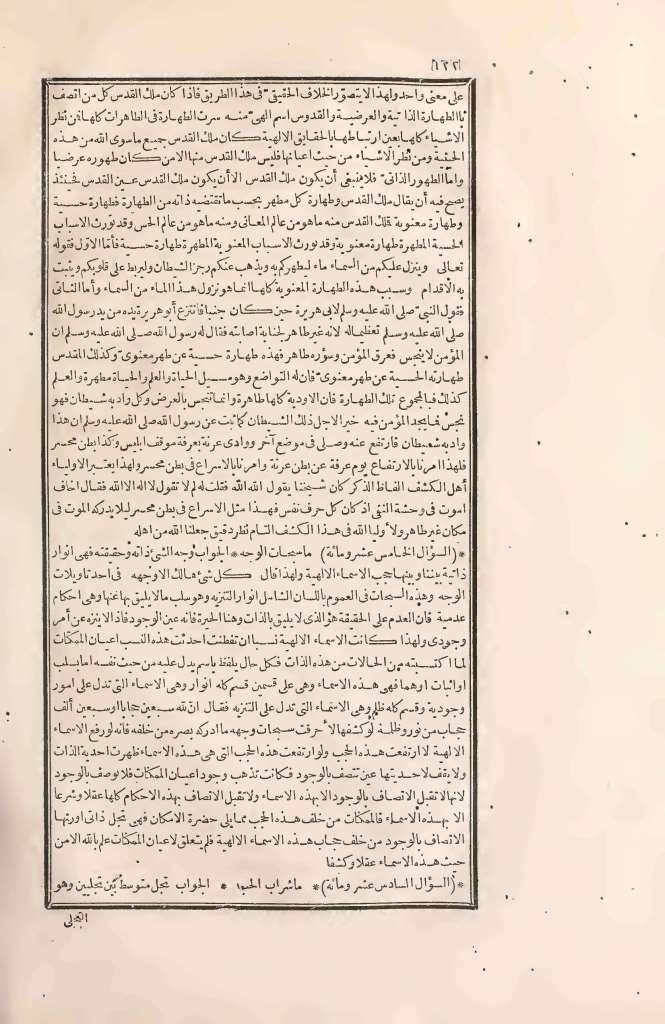 ١٢٢
على معنى واحد ولهذا لا يتصوّر الخلاف الحقيقيّ فى هذا الطريق فاذا كان ملك القدس كل من اتصف
بالطهارة الذاتية والعرضية والقدوس اسم الهىّ منه سرت الطهارة فى الطاهرات كلها فمن نظر
الاشياء كلها بعين ارتباطها بالحقايق الالهية كان ملك القدس جميع ماسوى الله من هذه
الحيثية ومن نظر الاشياء من حيث اعيانها فليس ملك القدس منها الا من كان طهوره عرضيا
وامّا الطهور الذاتىّ فلا ينبغى أن يكون ملك القدس الا أن يكون ملك القدس عين القدس فحينئذ
يصح فيه أن يقال ملك القدس وطهارة كل مطهر بحسب ما تقتضيه ذاته من الطهارة فطهارة حسية
وطهارة معنوية فملك القدس منه ما هو من عالم المعانى ومنه ما هو من عالم الحس وقد تورث الاسباب
الحسية المطهرة طهارة معنوية وقد تورث الاسباب المعنوية المطهرة طهارة حسية فأمّا الاوّل فقوله
تعالى وينزل عليكم من السماء ماء ليطهركم به ويذهب عنكم رجز الشيطان وليربط على قلوبكم ويثبت
به الاقدام وسبب هذه الطهارة المعنوية كلها انما هو نزول هذا الماء من السماء وأما الثانى
فقول النبىّ صلى الله عليه وسلم لابى هريرة حين كان جنبا فانتزع أبو هريرة يده من يد رسول الله
صلى الله عليه وسلم تعظيما له لانه غير طاهر لجنابة اصابته فقال له رسول الله صلى الله عليه وسلم ان
المؤمن لا ينجس فعرق المؤمن وسؤره طاهر فهذه طهارة حسية عن طهر معنوىّ وكذلك المقدس
طهارته الحسية عن طهر معنوىّ فان له التواضع وهو مسيل الحياة والعلم والحياة مطهرة والعلم
كذلك فبالمجموع تلك الطهارة فان الاودية كلها طاهرة وانما تنجس بالعرض وكل واد به شيطان فهو
نجس فما يجد المؤمن فيه خيرا لاجل ذلك الشيطان كما ثبت عن رسول الله صلى الله عليه وسلم ان هذا
واد به شيطان فارتفع عنه وصلى فى موضع آخر ووادى عرنة بعرفة موقف ابليس وكذا بطن محسر
فلهذا امرنا بالارتفاع يوم عرفة عن بطن عرنة وامرنا بالاسراع فى بطن محسر ولهذا يعتبر الاولياء
أهل الكشف الفاظ الذكر كان شيخنا يقول الله الله فقلت له لم لا تقول لا اله الا الله فقال اخاف
اموت فى وحشة النفى اذ كان كل حرف نفس فهذا مثل الاسراع فى بطن محسر لئلا يدركه الموت فى
مكان غير طاهر ولأولياء الله فى هذا الكشف التام نظر دقيق جعلنا الله من اهله
*(السؤال الخامس عشر ومائة) ما سبحات الوجه * الجواب وجه الشئ ذاته وحقيقته فهى انوار
ذاتية بيننا وبينها حجب الاسماء الالهية ولهذا قال كل شئ هالك الا وجهه فى احد تاويلات
الوجه وهذه السبحات فى العموم باللسان الشامل انوار التنزيه وهو سلب ما لا يليق بها عنها وهى احكام
عدمية فان العدم على الحقيقة هو الذى لا يليق بالذات وهنا الحيرة فانه عين الوجود فاذا لا يتنزه عن أمر
وجودى ولهذا كانت الاسماء الالهية نسبا ان تفطنت احدثت هذه النسب اعيان الممكنات
لما اكتسبته من الحالات من هذه الذات فكل حال يلفظ باسم يدل عليه من حيث نفسه اما بسلب
او اثبات او هما فهى هذه الاسماء وهى على قسمين قسم كله انوار وهى الاسماء التى تدل على امور
وجودية وقسم كله ظلم وهى الاسماء التى تدل على التنزيه فقال ان لله سبعين حجابا او سبعين ألف
حجاب من نور وظلمة لو كشفها لأحرقت سبحات وجهه ما ادركه بصره من خلقه فانه لو رفع الاسماء
الالهية لارتفعت هذه الحجب ولو ارتفعت هذه الحجب التى هى هذه الاسماء ظهرت احدية الذات
ولا يقف لاحديتها عين تتصف بالوجود فكانت تذهب وجود اعيان الممكنات فلا توصف بالوجود
لانها لا تقبل الاتصاف بالوجود الا بهذه الاسماء ولا تقبل الاتصاف بهذه الاحكام كلها عقلا وشرعا
الا بهذه الاسماء فالممكنات من خلف هذه الحجب مما يلى حضرة الامكان فهى تجل ذاتى اورثها
الاتصاف بالوجود من خلف حجاب هذه الاسماء الالهية فلم يتعلق لاعيان الممكنات علم بالله الا من
حيث هذه الاسماء عقلا وكشفا
*(السؤال السادس عشر ومائة)* ما شراب الحب * الجواب تجل متوسط بين تجليين وهو
التجلى